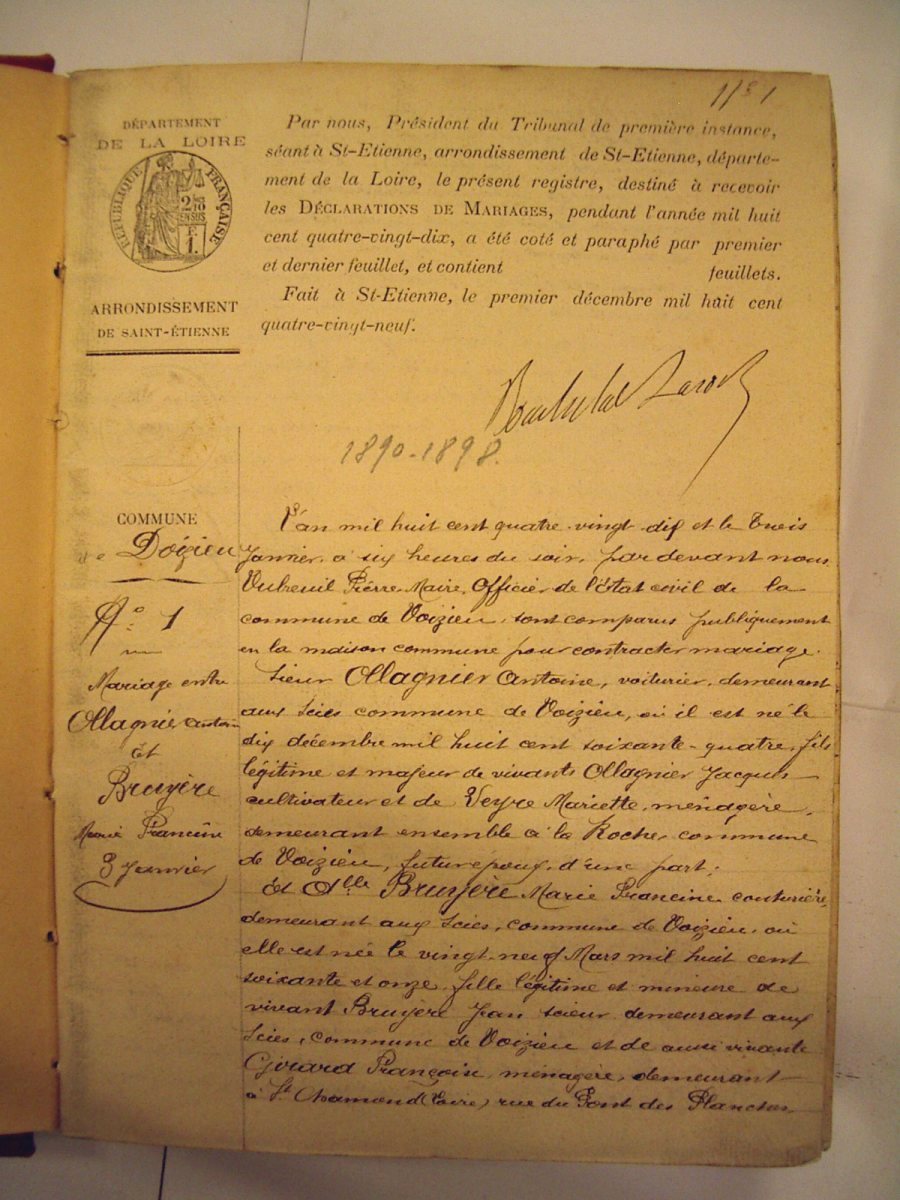 11 8 1
DÉPARTEMENT
DE LA LOIRE
RÉPUBLIQUE FRANÇAISE
2/10
EN SUS
F.
1.
ARRONDISSEMENT
DE SAINT-ÉTIENNE
Par nous, Président du Tribunal de première instance,
séant à St-Etienne, arrondissement de St-Etienne, départe-
ment de la Loire, le présent registre, destiné à recevoir
les DÉCLARATIONS DE MARIAGES, pendant l'année mil huit
cent quatre-vingt-dix, a été coté et paraphé par premier
et dernier feuillet, et contient feuillets.
Fait à St-Etienne, le premier décembre mil huit cent
quatre-vingt-neuf.
1890-1898.
COMMUNE
de Doizieu
N° 1
Mariage entre
Ollagnier Antoine
Et
Bruyère
Marie Francine
3 Janvier
L'an mil huit cent quatre-vingt-dix et le trois
Janvier, à six heures du soir, par devant nous
Pierre, Maire, Officier de l'état civil de la
commune de Doizieu, sont comparus publiquement
en la maison commune pour contracter mariage.
Sieur Ollagnier Antoine, voiturier, demeurant
aux Scies commune de Doizieu, où il est né le
dix décembre mil huit cent soixante-quatre, fils
légitime et majeur de vivants Ollagnier Jacques
cultivateur et de Veyre Mariette, ménagère,
demeurant ensemble à la Roche, commune
de Doizieu, futur époux, d'une part;
Et Dlle Bruyère Marie Francine couturière,
demeurant aux Scies, commune de Doizieu, où
elle est née le vingt-neuf Mars mil huit cent
soixante et onze, fille légitime et mineure de
vivant Bruyère Jean scieur demeurant aux
Scies, commune de Doizieu et de aussi vivante
Girard Françoise, ménagère, demeurant
à St Chamond (Loire) rue du Pont des Planches